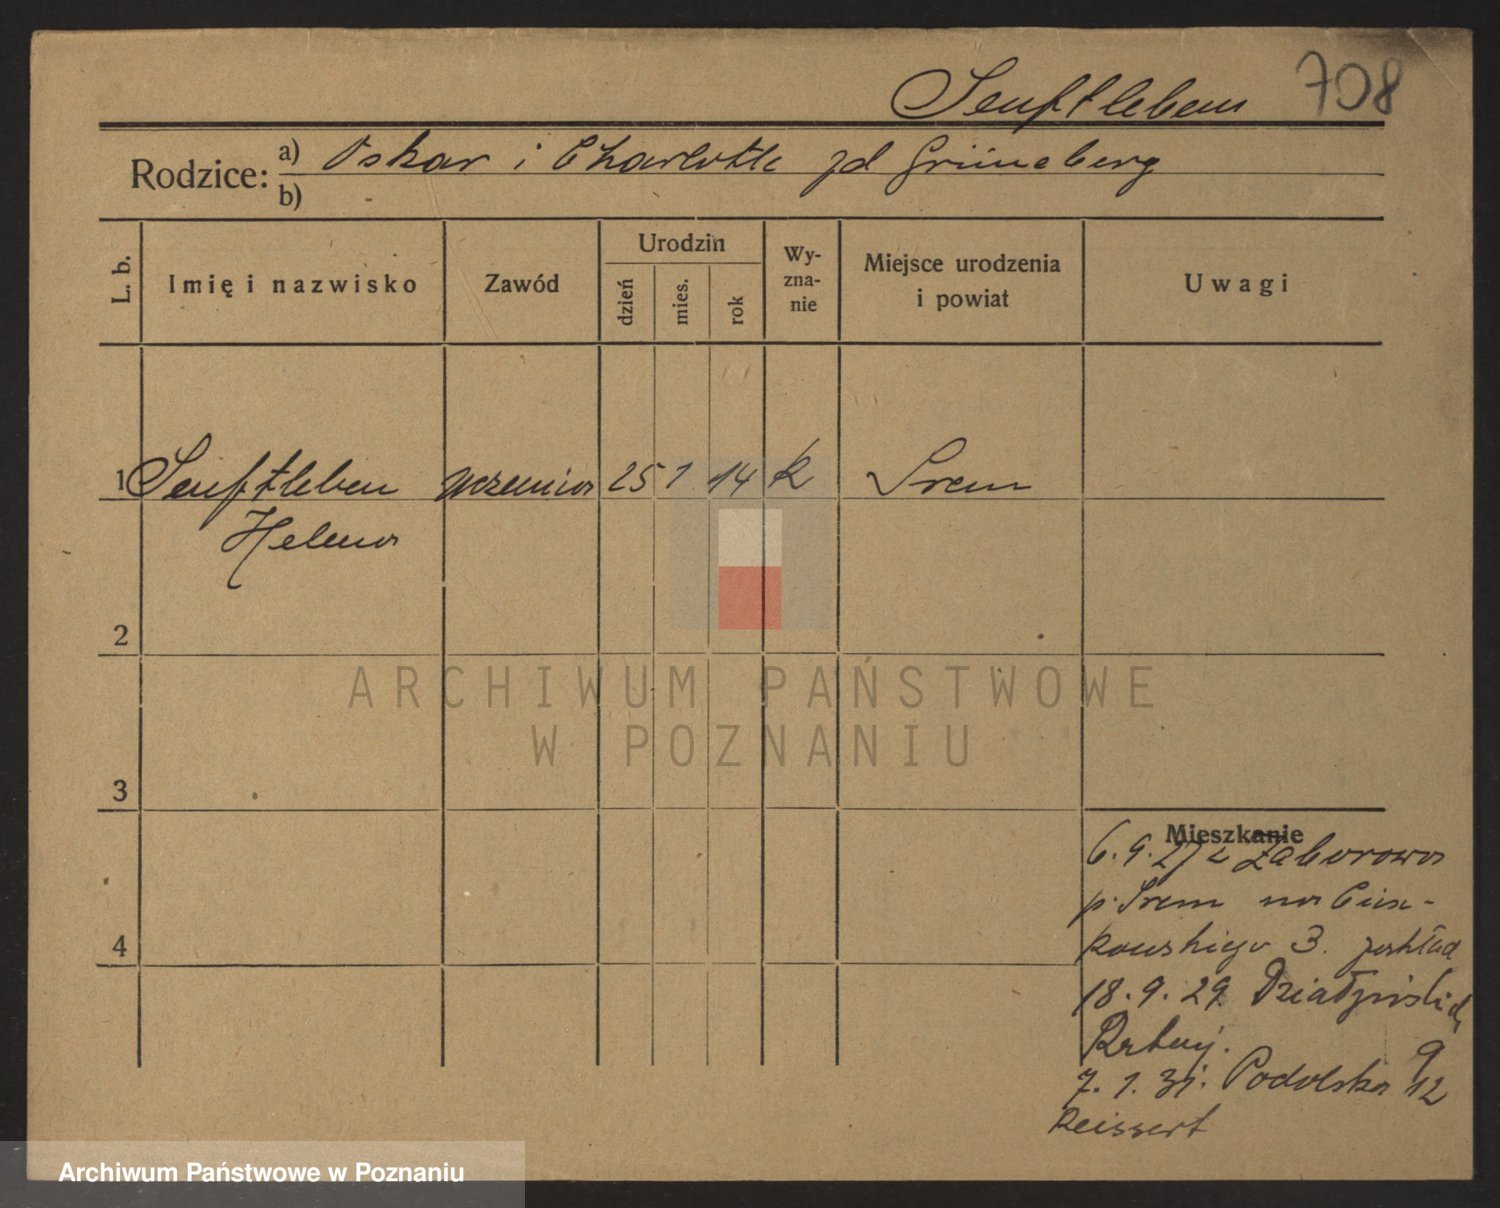 Senftleben 708
Rodzice: a) Oskar i Charlotte zd Grüneberg
b)
L. b. Imię i nazwisko Zawód Urodzin dzień mies. rok Wy-zna-nie Miejsce urodzenia i powiat Uwagi
1 Senftleben uczenica 25 1 14 k Srem
Helena
2
ARCHIWUM PAŃSTWOWE
W POZNANIU
3
Mieszkanie
6.9.27 z Zaborowa
p. Srem na
kowskiego 3.
4
18.9.29 Działyńskich
9
7.1.31. Podolska 12
Reissert
Archiwum Państwowe w Poznaniu